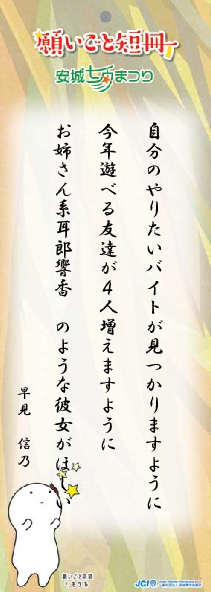 願いごと短冊
安城七夕まつり
自分のやりたいバイトが見つかりますように
今年遊べる友達が4人増えますように
お姉さん系耳郎響香 のような彼女がほ
早見 信乃
願いごと短冊
JCI